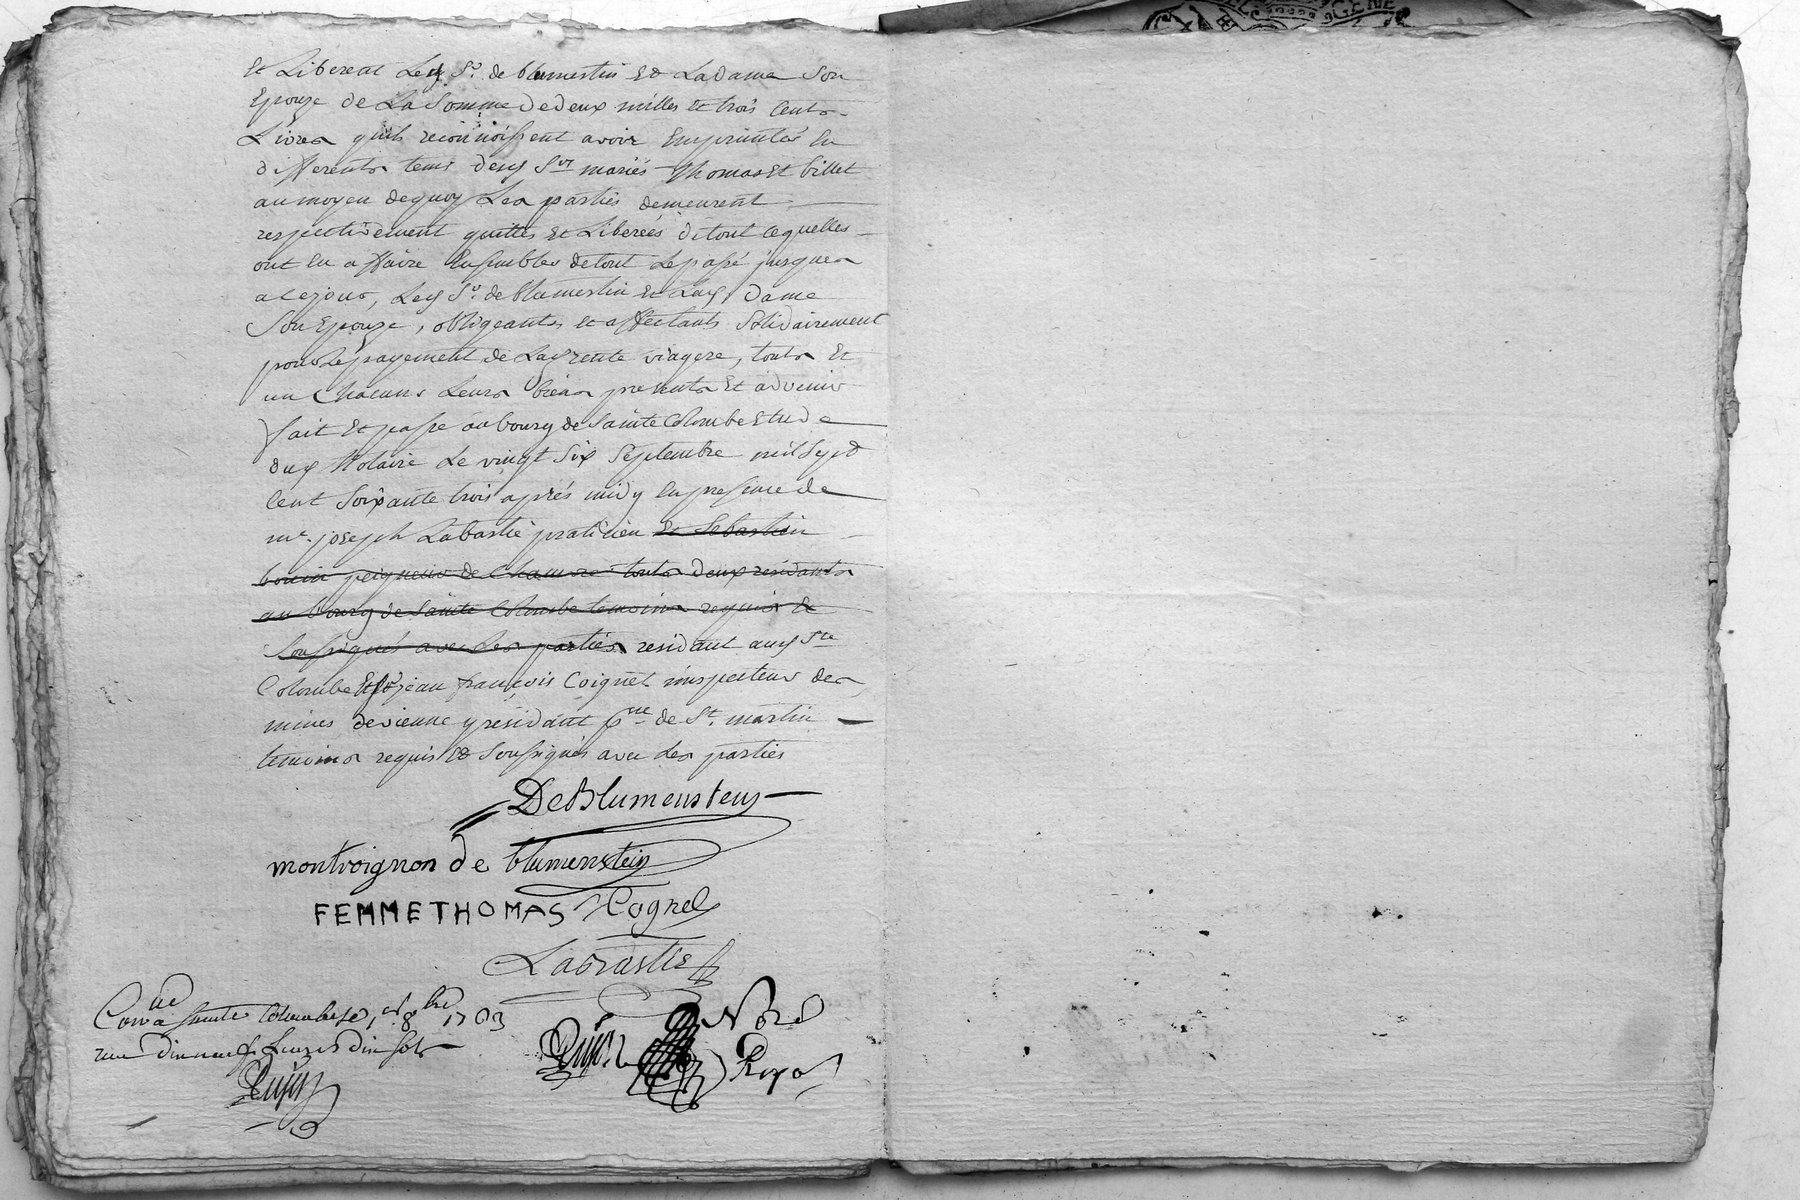 et Liberent Lesd. Sr. de blumestin Et La Dame Son
Epouze de La Somme de deux milles et trois Cents
Livres quils reconnoissent avoir Empruntés En
differents tems desd. Srs mariés Thomas et billet
au moyen dequoy Les parties demeurent
respectivement quittes et Liberées de tout ce quelles
ont Eu affaire Ensembles de tout Le passé jusques
a Ce jour, Led. Sr. de blumestin et Lad. Dame
Son Epouze, obligeants et affectants Solidairement
pour Le payement de Lad. rente viagere, touts Et
un Chacuns Leurs biens presents Et advenir
fait Et passé au bourg de Sainte Colombe Etude
dud. Notaire Le vingt Six Septembre mil Sept
Cent Soixante trois après midy En presence de
me. joseph Labastie praticien et Sebastien
peigneur de Chanvre touts deux residants
au bourg de Sainte Colombe temoins requis et
Soussignés avec Les parties residant aud. Ste
Colombe Et Sr jean françois Coignet inspecteur des
mines de vienne y residant psse de St. martin
temoins requis Et Soussignés avec Les parties
De Blumenstein
montroignon de blumenstein
FEMME THOMAS Cognet
Labastie
Conlé a Sainte Colombe le 1er 8bre 1763
reçu dix neuf Livres dix Sols
Dujon
Nore
Royal